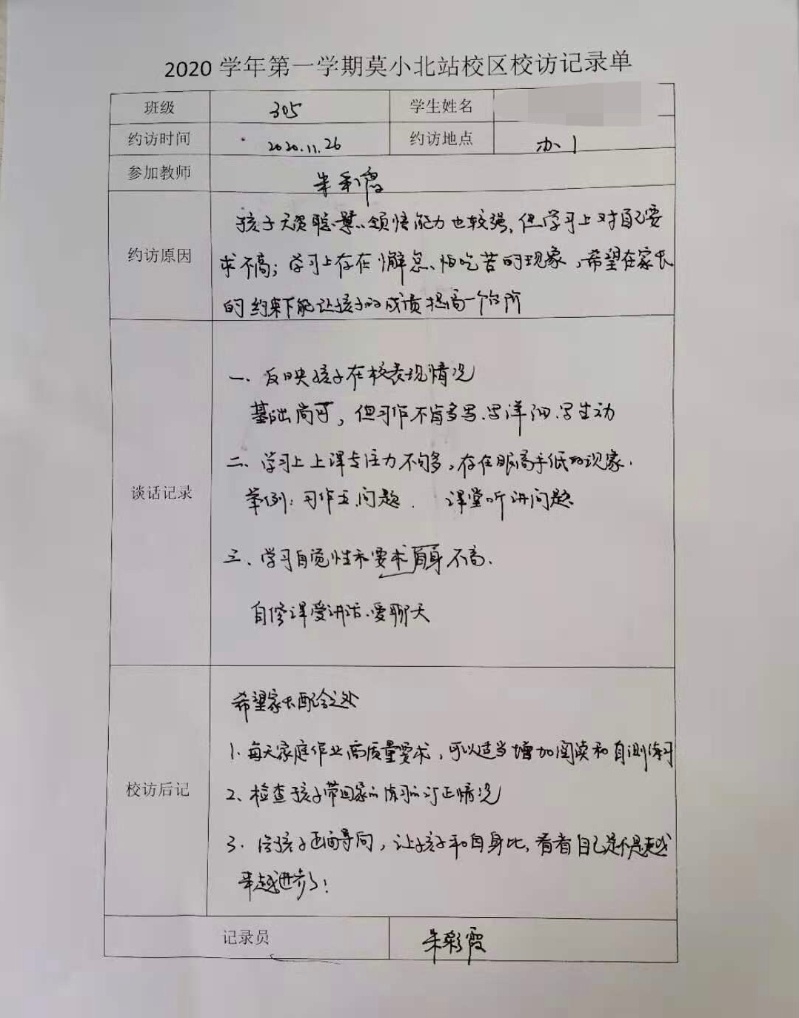 2020 学年第一学期莫小北站校区校访记录单
班级 305 学生姓名
约访时间 2020.11.26 约访地点 办1
参加教师 朱彩霞
约访原因
孩子天资聪慧、领悟能力也较强,但学习上对自己要
求不高;学习上存在懈怠、怕吃苦的现象,希望在家长
的约束下能让孩子的成绩提高一个台阶
谈话记录
一、反映孩子在校表现情况
基础尚可,但习作不肯多写、写详细、写生动
二、学习上上课专注力不够,存在眼高手低的现象.
举例:习作上问题. 课堂听讲问题
三、学习自觉性和要求自身不高.
自修课爱讲话.爱聊天
校访后记
希望家长配合之处
1、每天家庭作业高质量要求,可以适当增加阅读和自测练习
2、检查孩子带回家的练习的订正情况
3、给孩子正面导向,让孩子和自身比,看看自己是不是越
来越进步了!
记录员 朱彩霞